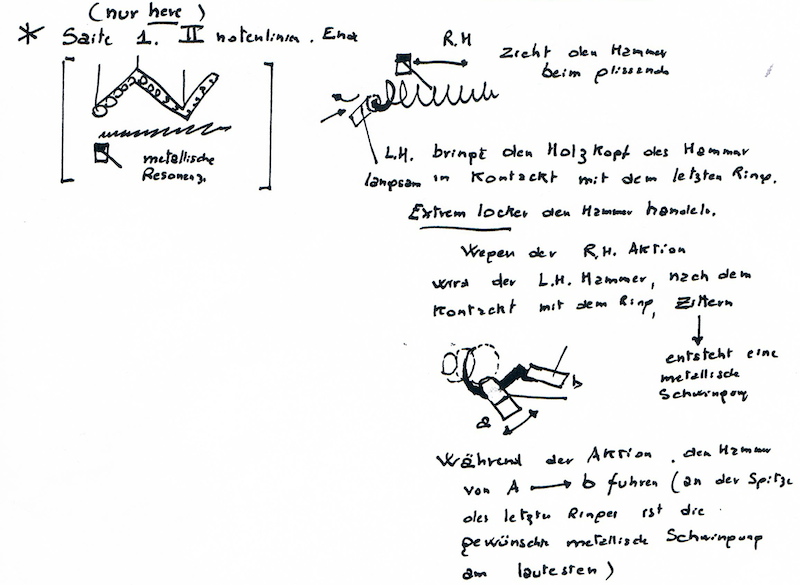 (nur here)
* Saite 1. II notenlinien. End
metallische
Resonenz.
R.H
zieht den Hammer
beim plissando
L.H. bringt den Holzkopf des Hammer
langsam in Kontackt mit dem letzten Ring.
Extrem locker den Hammer handeln.
Wegen der R.H. Aktion
wird der L.H. Hammer, nach dem
Kontackt mit dem Ring, zittern
entsteht eine
metallische
Schwingung
b
a
Während der Aktion. den Hammer
von A → b fuhren (an der Spitze
des letzten Ringes ist die
gewünschte metallische Schwingung
am lautesten)